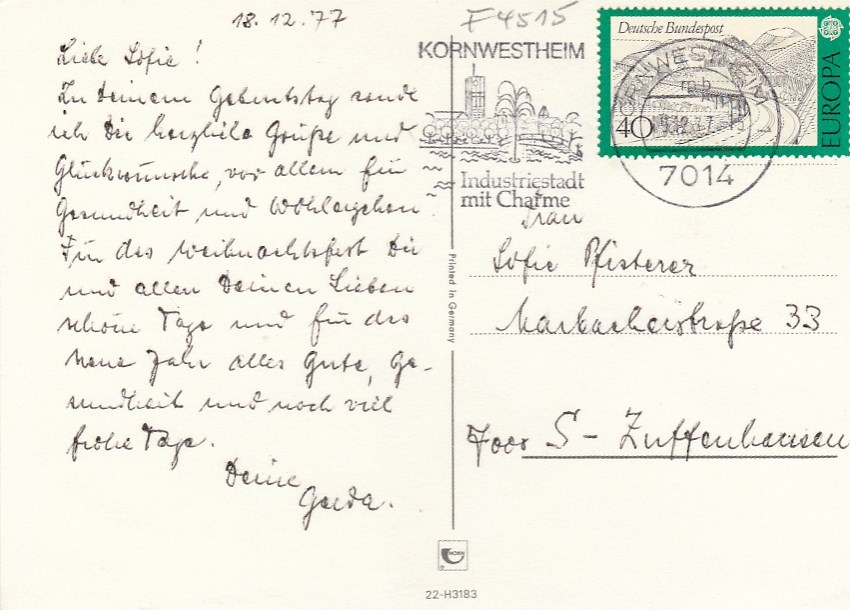 18.12.77
F4515
Liebe Sofie!
Zu Deinem Geburtstag sende
ich Dir herzliche Grüße und
Glückwünsche, vor allem für
Gesundheit und Wohlergehen.
Für das Weihnachtsfest Dir
und allen Deinen Lieben
schöne Tage und für das
neue Jahr alles Gute, Ge-
sundheit und noch viel
frohe Tage.
Deine
Gerda.
KORNWESTHEIM
Industriestadt
mit Charme
Deutsche Bundespost
EUROPA
40
KORNWESTHEIM
mb
7014
Frau
Sofie Pfisterer
Marbacherstraße 33
7000 S-Zuffenhausen
Printed in Germany
HORN
22-H3183